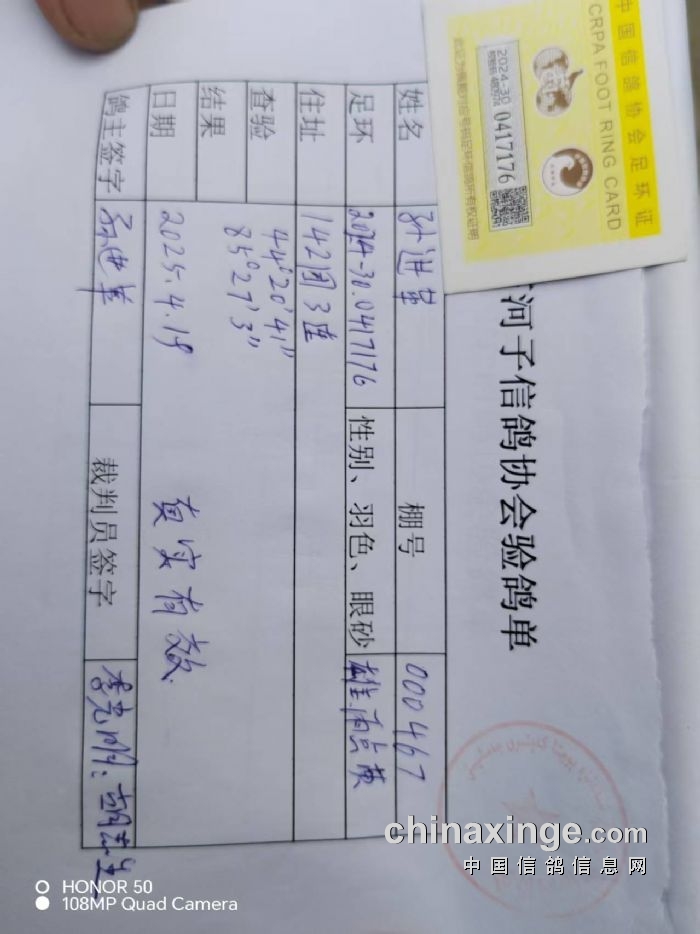 中国信鸽协会足环证
CRPA FOOT RING CARD
2024-30
0417176
河子信鸽协会验鸽单
姓名 孙进军 棚号 000467
足环 2024-30.0417176 性别、羽色、眼砂 雄.雨点.黄
住址 142团3连
查验 44°20′41″
85°27′3″
结果
真实有效.
日期 2025.4.19
鸽主签字 孙进军 裁判员签字
chinaxinge.com
中国信鸽信息网
HONOR 50
108MP Quad Camera